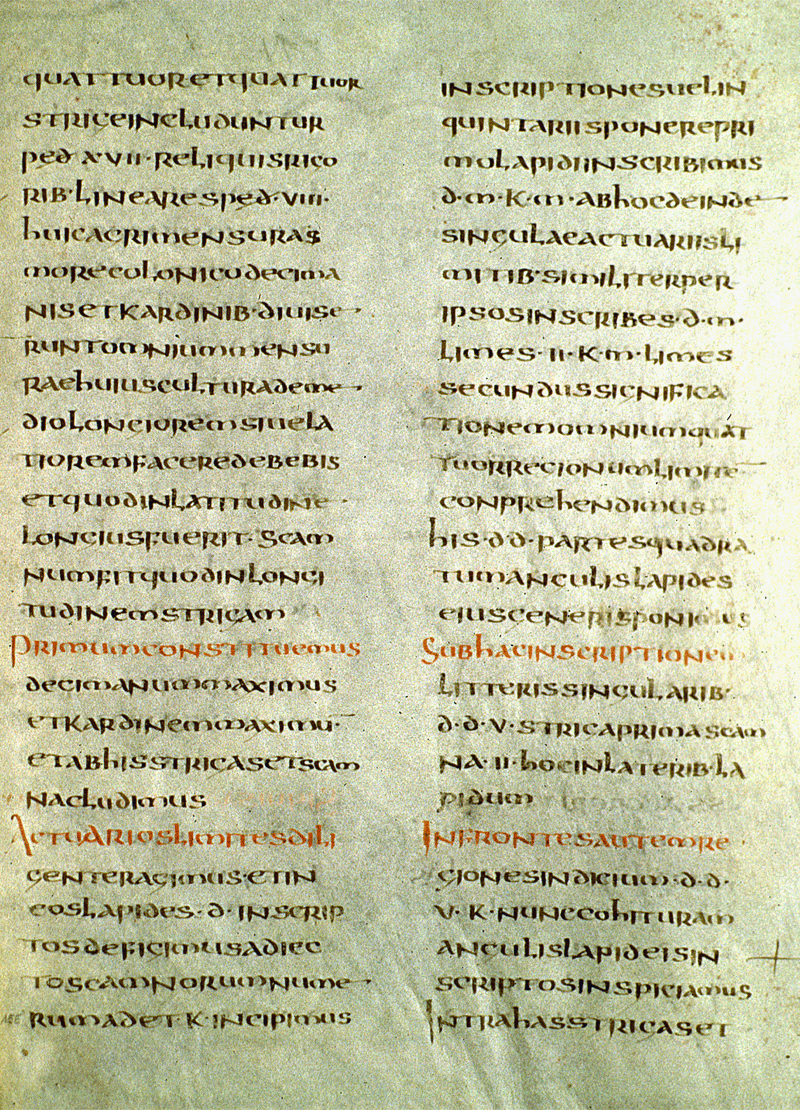 quattuoretquattuor
stricęincluduntur
ped·xvii·reliquisrico
rib·linearesped·viii·
huicagrimensuras
morecolonicodecima
nisetkardinib·diuise
runtomniummensu
raehuiusculturademe
diolongioremsiuela
tioremfaceredebebis
etquodinlatitudine·
longiusfuerit·scam
numfitquodinlongi
tudinemstrigam
primumconstituemus
decimanummaximus
etkardinemmaximu·
etabhisstrigasetscam
nacludimus
Actuarioslimitesdili
genteragimus·etin
eoslapides·d·inscrip
tosdefigimusadiec
toscamnorumnume
rumadet·K·incipimus
inscriptionesuelin
quintariisponerepri
molapidiinscribimus
d·m·K·m·abhocdeinde
singulaeactuariisli
mitib·similiterper
ipsosinscribes·d·m·
limes·ii·K·m·limes
secundussignifica
tionemomniumquat
tuorregionumlimite
conprehendimus
his·d·d·partesquadra
tumangulislapides
eiusgenerisponimus
Subhacinscriptione
litterissingularib·
d·d·v·strigaprimascam
na·ii·hocinlaterib·la
pidum
Infrontesautemre
gionesindicium·d·d·
v·K·nunccohituram
angulislapideisin
scriptosinspiciamus
Intrahasstrigaset